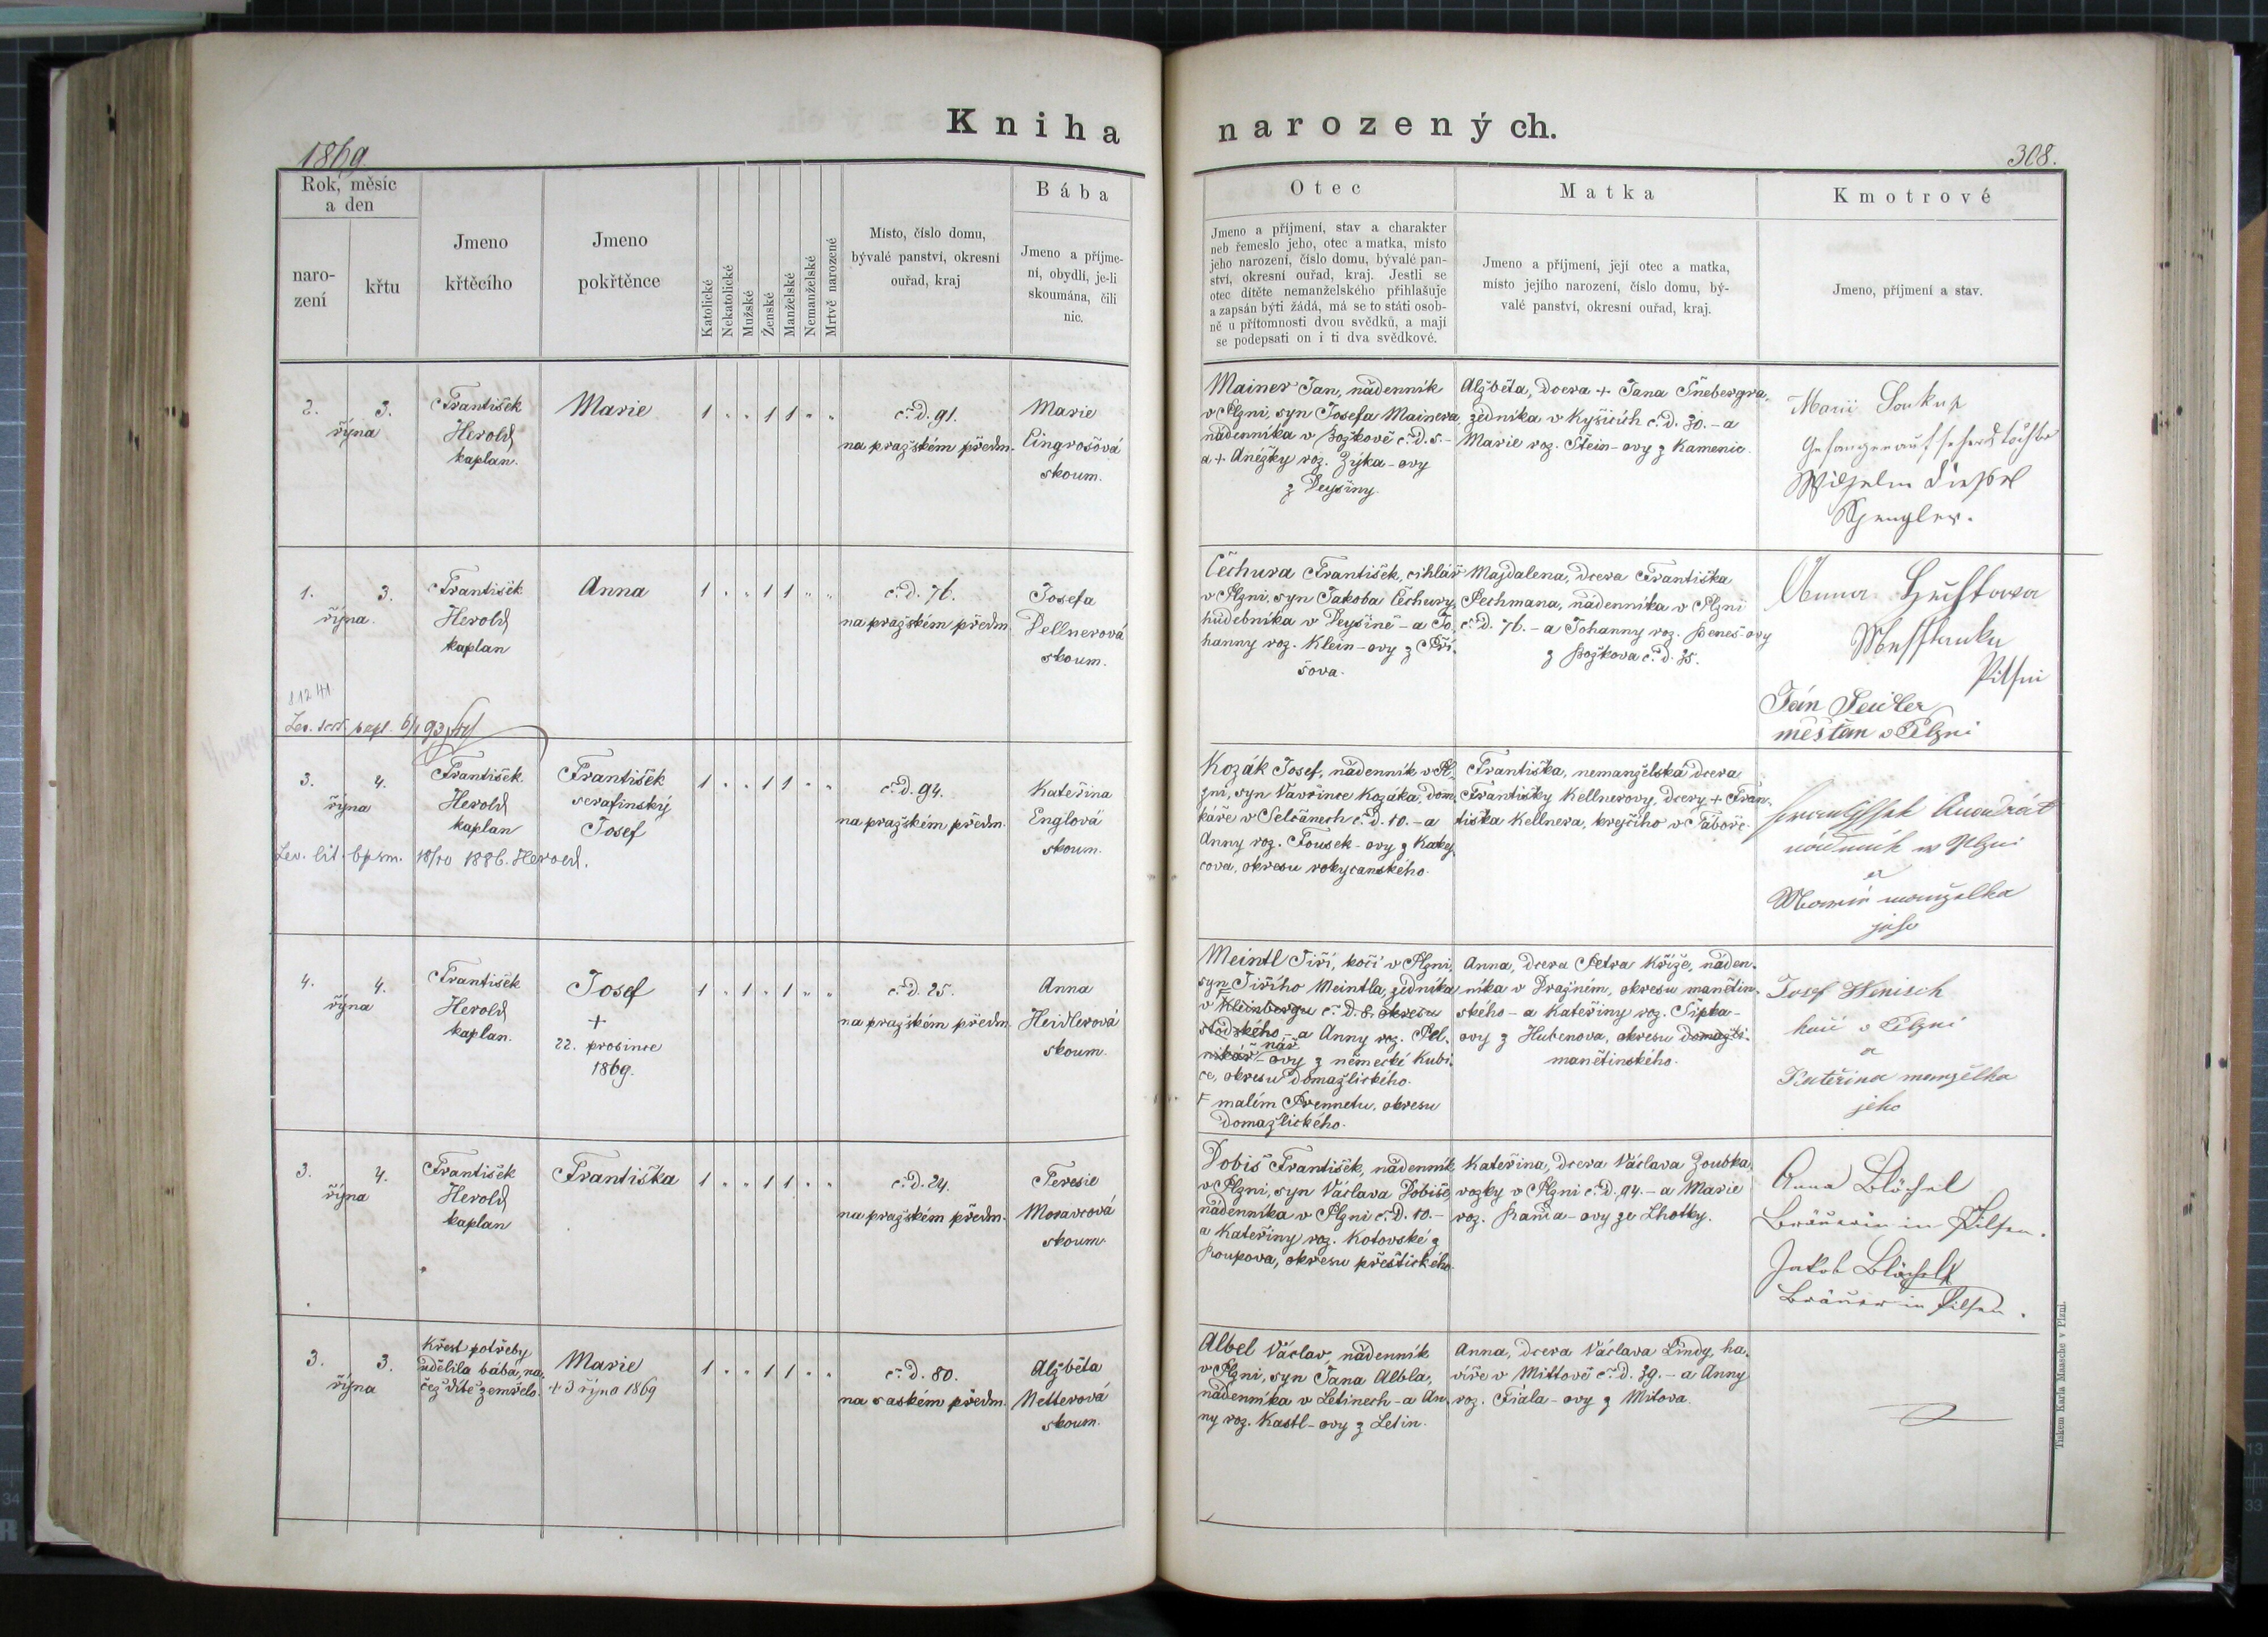 Kniha narozených.
1869
308.
Rok, měsíc
a den
naro-
zení
křtu
Jmeno
křtěcího
Jmeno
pokřtěnce
Katolické
Nekatolické
Mužské
Ženské
Manželské
Nemanželské
Mrtvě narozené
Místo, číslo domu,
bývalé panství, okresní
ouřad, kraj
Bába
Jmeno a příjme-
ní, obydlí, je-li
skoumána, čili
nic.
Otec
Jmeno a příjmení, stav a charakter
neb řemeslo jeho, otec a matka, místo
jeho narození, číslo domu, bývalé pan-
ství, okresní ouřad, kraj. Jestli se
otec dítěte nemanželského přihlašuje
a zapsán býti žádá, má se to státi osob-
ně u přítomnosti dvou svědků, a mají
se podepsati on i ti dva svědkové.
Matka
Jmeno a příjmení, její otec a matka,
místo jejího narození, číslo domu, bý-
valé panství, okresní ouřad, kraj.
Kmotrové
Jmeno, příjmení a stav.
2. 3.
října
František
Herold
kaplan.
Marie
1 " " 1 1 " "
č. d. 91.
na pražském předm.
Marie
Cingrošová
skoum.
Mainer Jan, nádenník
v Plzni, syn Josefa Mainera,
nádenníka v Božkově č. d. 5. -
a + Anežky roz. Zýka-ovy
z Deyšiny.
Alžběta, dcera + Jana Šnebergra,
zedníka v Kyšicích č. d. 30. - a
Marie roz. Stein-ovy z Kamenic.
Marii Soukup
Gefangenaufsehers
Wilhelm
Spengler.
1. 3.
října.
František
Herold
kaplan
Anna
1 " " 1 1 " "
č. d. 76.
na pražském předm.
Josefa
Dellnerová
skoum.
Čechura František, cihlář
v Plzni, syn Jakoba Čechury,
hudebníka v Deyšině - a Jo-
hanny roz. Klein-ovy z Pří-
šova.
Majdalena, dcera Františka
Pechmana, nádenníka v Plzni
č. d. 76. - a Johanny roz. Beneš-ovy
z Božkova č. d. 35.
Anna
Pilsni
Ján Seidler
měšťan v Plzni
3. 4.
října
František
Herold
kaplan
František
serafinský
Josef
1 " " 1 1 " "
č. d. 94.
na pražském předm.
Kateřina
Englová
skoum.
18/10 1886. Herold.
Kozák Josef, nádenník v Pl-
zni, syn Vavřince Kozáka, dom-
káře v Selčanech č. d. 10. - a
Anny roz. Fousek-ovy z Kakej-
cova, okresu rokycanského.
Františka, nemanželská dcera
Františky Kellnerovy, dcery + Fran-
tiška Kellnera, krejčího v Táboře.
nádenník w Plzni
a
Marie manželka
jeho
4. 4.
října
František
Herold
kaplan.
Josef
+
22. prosince
1869.
1 " 1 " 1 " "
č. d. 25.
na pražském předm.
Anna
Heidlerová
skoum.
Meintl Jiří, kočí v Plzni,
syn Jiřího Meintla, zedníka
v Kleinbergu č. d. 8. okresu
stodského - a Anny roz. Pel-
nikář-ovy z německé Kubi-
nář
ce, okresu domažlického.
malém Prennetu, okresu
domažlického.
Anna, dcera Petra Kříže, náden-
níka v Dražném, okresu manětín-
ského - a Kateřiny roz. Šipka-
ovy z Hubenova, okresu domažli-
manětinského.
Josef Wenisch
kočí v Plzni
a
Kateřina manželka
jeho
3. 4.
října
František
Herold
kaplan
Františka
1 " " 1 1 " "
č. d. 24.
na pražském předm.
Teresie
Moravcová
skoum.
Dobiš František, nádenník
v Plzni, syn Václava Dobiše,
nádenníka v Plzni č. d. 10. -
a Kateřiny roz. Kotovské z
Roupova, okresu přeštického.
Kateřina, dcera Václava Zoubka,
vozky v Plzni č. d. 94. - a Marie
roz. Raňia-ovy ze Lhotky.
Anna Blöchel
Bräuerin in Pilsen.
Jakob Blöchel
Bräuer in Pilsen.
3. 3.
října
Křest potřeby
udělila bába, na-
čež dítě zemřelo.
Marie
+ 3 října 1869
1 " " 1 1 " "
č. d. 80.
na saském předm.
Alžběta
Netterová
skoum.
Albel Václav, nádenník
v Plzni, syn Jana Albla,
nádenníka v Letinech - a An-
ny roz. Kastl-ovy z Letin.
Anna, dcera Václava Lindy, ha-
víře v Mittově č. d. 39. - a Anny
roz. Fiala-ovy z Mitova.
Tiskem Karla Maasche v Plzni.